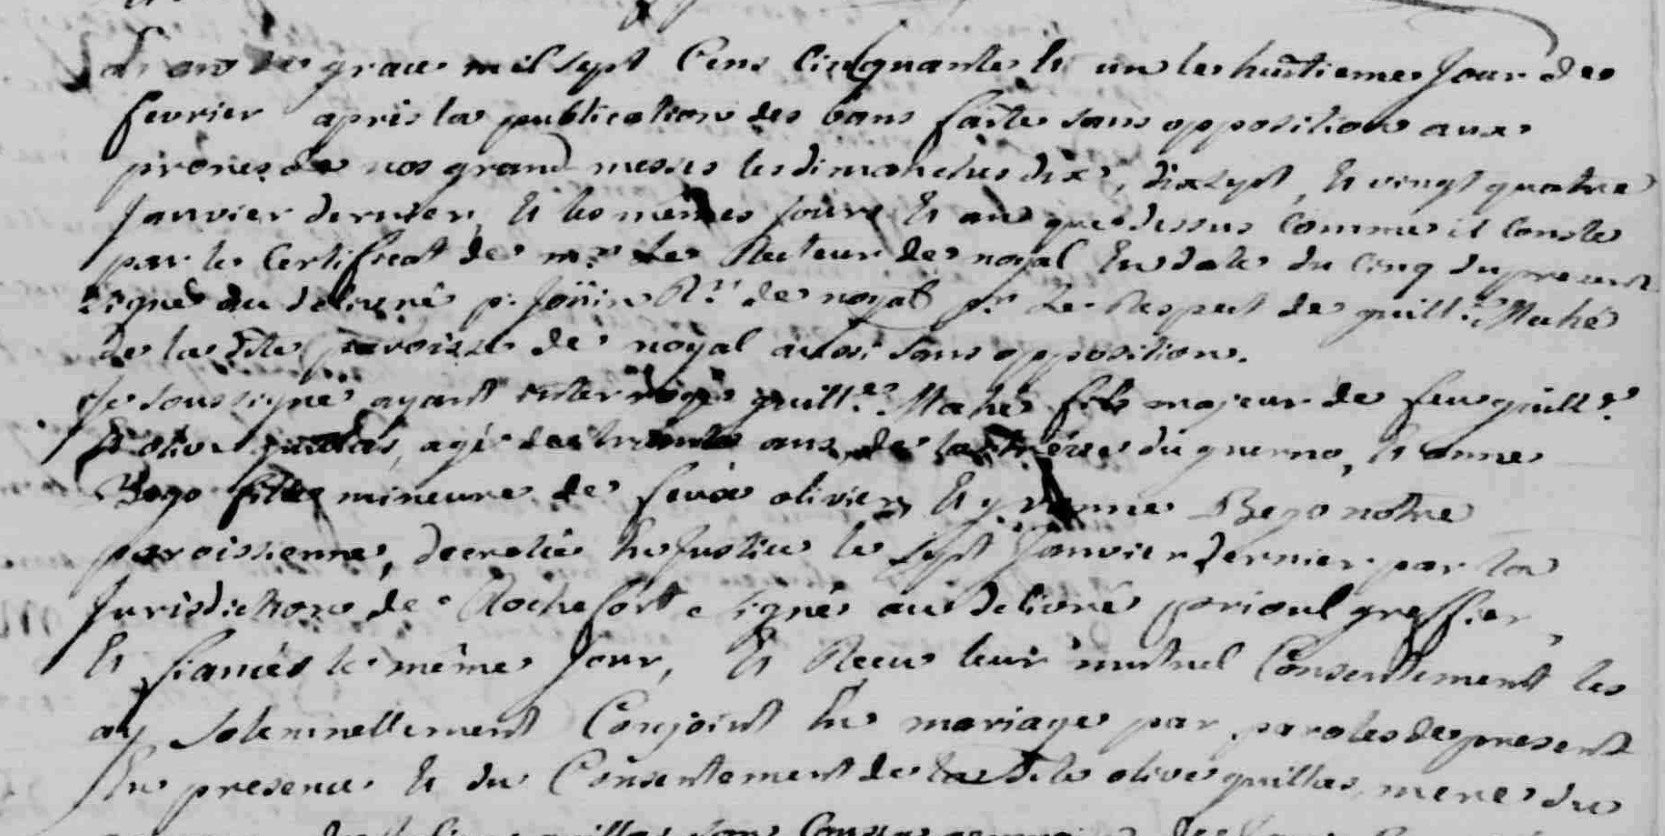 L'an de grace mil sept Cens Cinquante Et un le huitieme Jour de
fevrier après la publication des bans faite sans opposition aux
prones de nos grand messes les dimanches dix, dixsept, Et vingt quatre
Janvier dernier, Et les mêmes jours Et an que dessus comme il conste
par le Certificat de mr. Le Recteur de noyal En date du cinq du present
signé au delivré p. Joüin Rr. de noyal pr. Le Respect de guill.e Mahé
de la dite paroisse de noyal aussi sans opposition.
Je soussigné ayant interrogé guill.e Mahé fils majeur de feu guill.e
Et olive, agé de trente ans, de la trève du guerno, Et anne
Bego fille mineure de feux olivier, Et yvonne Bego notre
paroissienne, decretée En Justice le sept Janvier dernier par la
Jurisdiction de Rochefort signé au delivré prioul greffier,
Et fiancés le même Jour, Et Recu leur mutuel Consentement les
ay solemnellement Conjoint En mariage par paroles de present
En presence Et du Consentement de la dite olive quillas, mere du